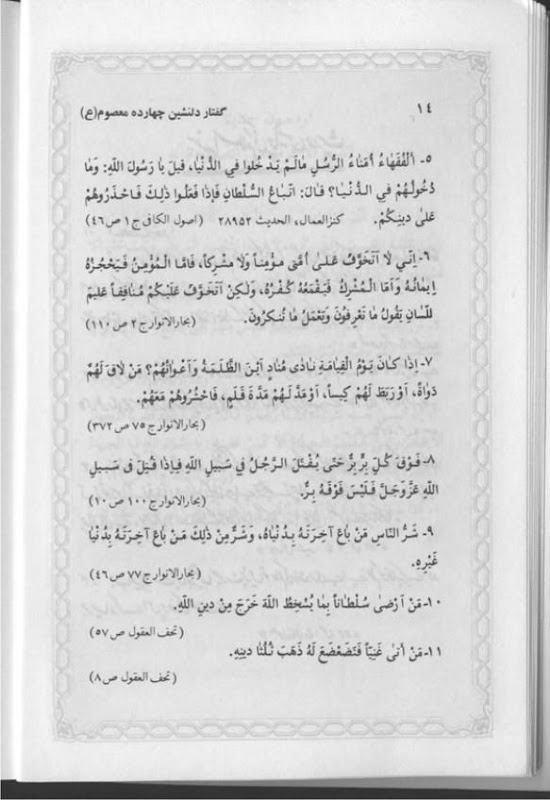 ۱۴
گفتار دلنشین چهارده معصوم(ع)
۵- اَلْفُقَهاءُ اُمَناءُ الرُّسُلِ مالَمْ یَدْخُلوا فِی الدُّنْیا، قیلَ یا رَسُولَ اللّهِ: وَما
دُخُولُهُمْ فِی الدُّنْیا؟ قالَ: اتِّباعُ السُّلْطانِ فَاِذا فَعَلُوا ذلِکَ فَاحْذَرُوهُمْ
عَلی دینِکُمْ. کنزالعمال، الحدیث ۲۸۹۵۲ (اصول الکافی ج ۱ ص ۴۶)
۶- اِنّی لا اَتَخَوَّفُ عَلی اُمَّتی مؤْمِناً وَلا مشْرِکاً، فَامَّا الْمُؤْمِنُ فَیَحْجُزُهُ
اِیمانُهُ وَ اَمَّا الْمُشْرِکُ فَیَقْمَعُهُ کُفْرُهُ، وَلکِنْ اَتَخَوَّفُ عَلَیْکُمْ مُنافِقاً عَلیمَ
اللِّسانِ یَقُولُ ما تَعْرِفُونَ وَیَعْمَلُ ما تُنکِرُونَ. (بحارالانوار ج ۲ ص ۱۱۰)
۷- اِذا کانَ یَوْمُ الْقِیامَةِ نادی مُنادٍ اَیْنَ الظَّلَمَةُ وَ اَعْوانُهُمْ؟ مَنْ لاقَ لَهُمْ
دَواةً، اَوْ رَبَطَ لَهُمْ کیساً، اَوْ مَدَّ لَهُمْ مَدَّةَ قَلَمٍ، فَاحْشُرُوهُمْ مَعَهُمْ.
(بحارالانوار ج ۷۵ ص ۳۷۲)
۸- فَوْقَ کُلِّ بِرٍّ بِرٌّ حَتّی یُقْتَلَ الرَّجُلُ فی سَبیلِ اللّهِ فَاِذا قُتِلَ فی سَبیلِ
اللّهِ عَزَّوَجَلَّ فَلَیْسَ فَوْقَهُ بِرٌّ. (بحارالانوار ج ۱۰۰ ص ۱۰)
۹- شَرُّ النّاسِ مَنْ باعَ آخِرَتَهُ بِدُنْیاهُ، وَشَرٌّ مِنْ ذلِکَ مَنْ باعَ آخِرَتَهُ بِدُنْیا
غَیْرِهِ. (بحارالانوار ج ۷۷ ص ۴۶)
۱۰- مَنْ اَرْضی سُلْطاناً بِما یُسْخِطُ اللّهَ خَرَجَ مِنْ دینِ اللّهِ.
(تحف العقول ص ۵۷)
۱۱- مَنْ أتی غَنِیّاً فَتَضَعْضَعَ لَهُ ذَهَبَ ثُلُثا دینِهِ.
(تحف العقول ص ۸)